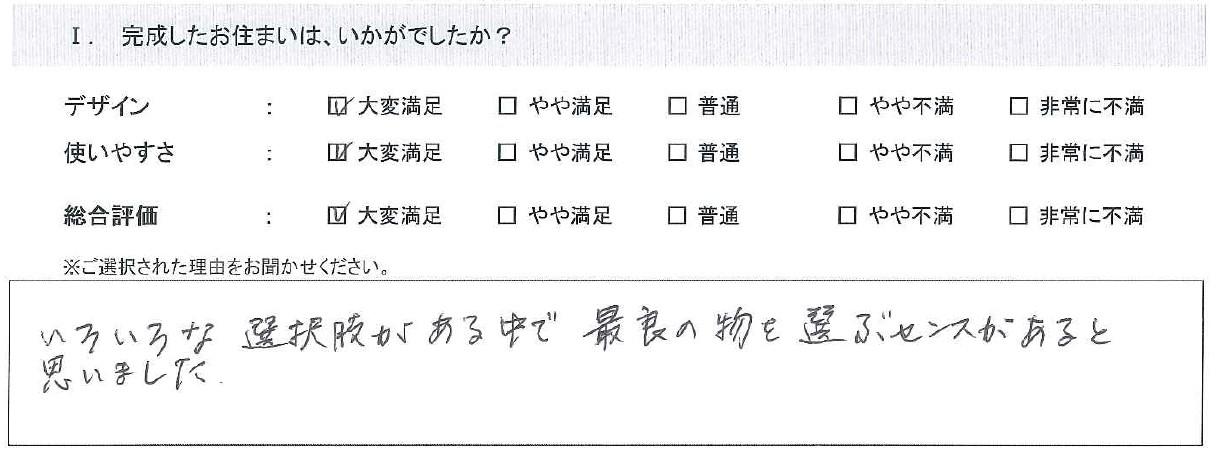 Ⅰ. 完成したお住まいは、いかがでしたか？
デザイン : ☑ 大変満足 □ やや満足 □ 普通 □ やや不満 □ 非常に不満
使いやすさ : ☑ 大変満足 □ やや満足 □ 普通 □ やや不満 □ 非常に不満
総合評価 : ☑ 大変満足 □ やや満足 □ 普通 □ やや不満 □ 非常に不満
※ご選択された理由をお聞かせください。
いろいろな選択肢がある中で最良の物を選ぶセンスがあると
思いました.